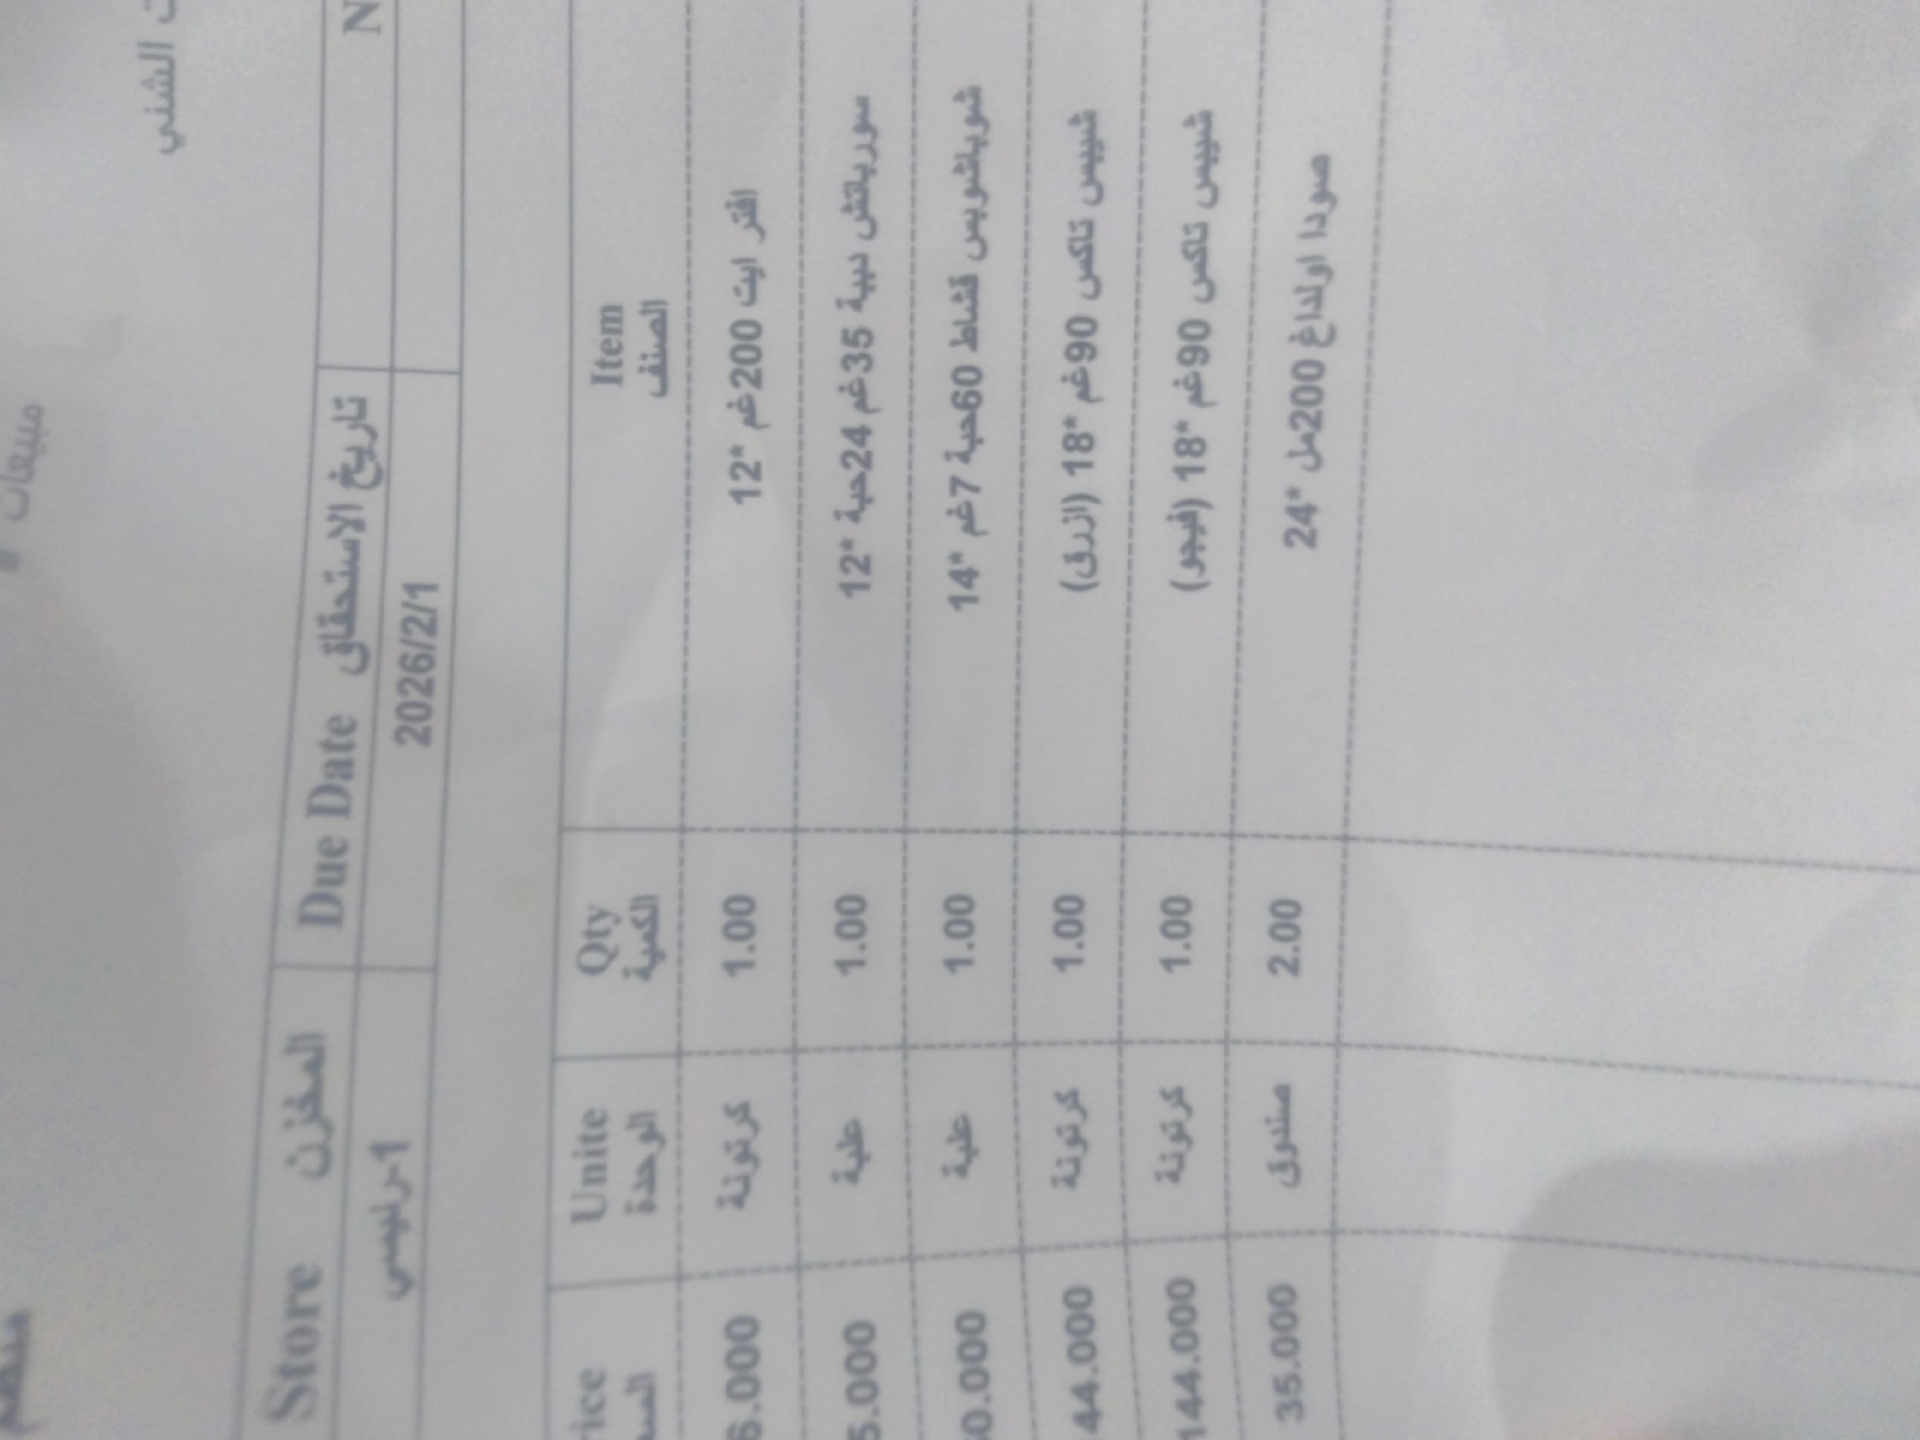 الشني
مبيعات
Store المخزن Due Date تاريخ الاستحقاق N
1-رئيسي 2026/2/1
Unite Qty Item
الوحدة الكمية الصنف
6.000 كرتونة 1.00 افتر ايت 200غم *12
5.000 علبة 1.00 سوربانش دببة 35غم 24حبة *12
0.000 علبة 1.00 شوباشوبس قشاط 60حبة 7غم *14
44.000 كرتونة 1.00 شيبس تاكس 90غم *18 (ازرق)
144.000 كرتونة 1.00 شيبس تاكس 90غم *18 (فيجو)
35.000 صندوق 2.00 صودا اولداغ 200مل *24